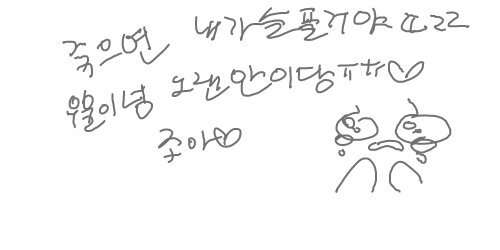 죽으면 내가슬플거야ㄸㄹㄹ
우울이넝 노랜만이당ㅠㅠ♡
조아♡